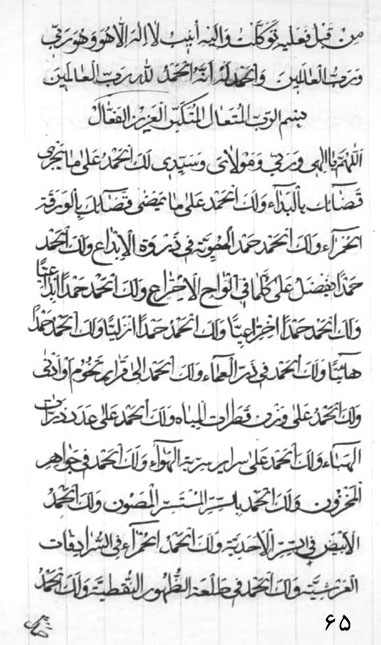 من قبل فعليه توكلت واليه انيب لا اله الا هو وهو ربي
ورب العالمين والحمد له انه الحمد لله رب العالمين
بسم الرب المتعال المتكبر العزيز الفعال
اللهم يا الهي وربي ومولاي وسيدي لك الحمد على ما تجري
قضائك بالبداء ولك الحمد على ما يمضي قضائك بالورقة
الحمراء ولك الحمد حمد الهوية في ذروة الابداع ولك الحمد
حمدا يفضل على كلما في الواح الاختراع ولك الحمد حمدا ابداعيا
ولك الحمد حمدا اختراعيا ولك الحمد حمدا ازليا ولك الحمد حمدا
هائيا ولك الحمد في ذر العماء ولك الحمد الى قرار تخوم او ادنى
ولك الحمد على وزن قطرات المياه ولك الحمد على عدد ذرات
الهباء ولك الحمد على سراير برية الهواء ولك الحمد في جواهر
المخزون ولك الحمد بالسر المستسر المصون ولك الحمد
الابيض في السر الاحدية ولك الحمد الحمراء في السرادقات
العرشية ولك الحمد في طلعة الظهور النقطية ولك الحمد
۶۵